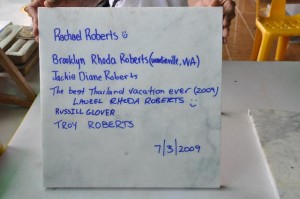 Rachael Roberts
Brooklyn Rhoda Roberts (Woodinville, WA)
Jackie Diane Roberts
The best Thailand vacation ever (2009)
LAUREL RHODA ROBERTS
RUSSILL GLOVER
TROY ROBERTS
7/3/2009